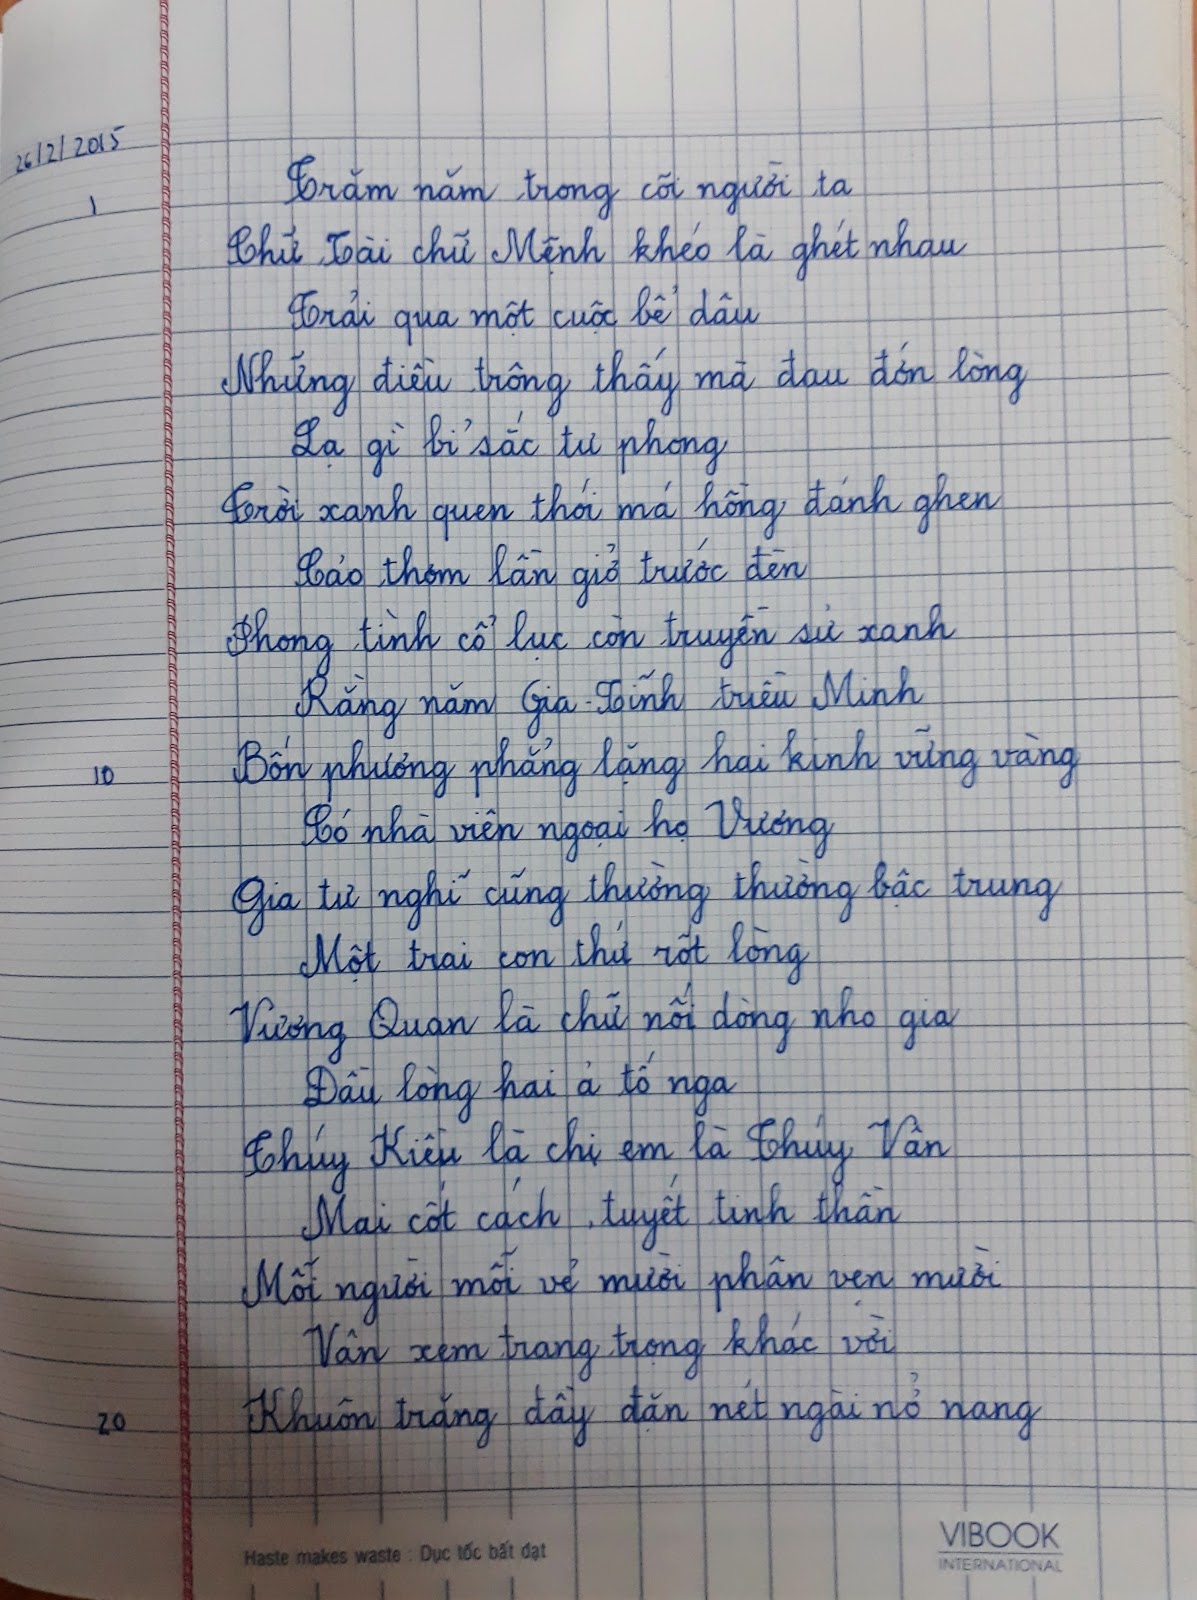 26/2/2015
1
Trăm năm trong cõi người ta
Chữ Tài chữ Mệnh khéo là ghét nhau
Trải qua một cuộc bể dâu
Những điều trông thấy mà đau đớn lòng
Lạ gì bỉ sắc tư phong
Trời xanh quen thói má hồng đánh ghen
Cảo thơm lần giở trước đèn
Phong tình cổ lục còn truyền sử xanh
Rằng năm Gia-Tĩnh triều Minh
10
Bốn phương phẳng lặng hai kinh vững vàng
Có nhà viên ngoại họ Vương
Gia tư nghĩ cũng thường thường bậc trung
Một trai con thứ rốt lòng
Vương Quan là chữ nối dòng nho gia
Đầu lòng hai ả tố nga
Thúy Kiều là chị em là Thúy Vân
Mai cốt cách, tuyết tinh thần
Mỗi người mỗi vẻ mười phân vẹn mười
Vân xem trang trọng khác vời
20
Khuôn trăng đầy đặn nét ngài nở nang
Haste makes waste : Dục tốc bất đạt
VIBOOK
INTERNATIONAL